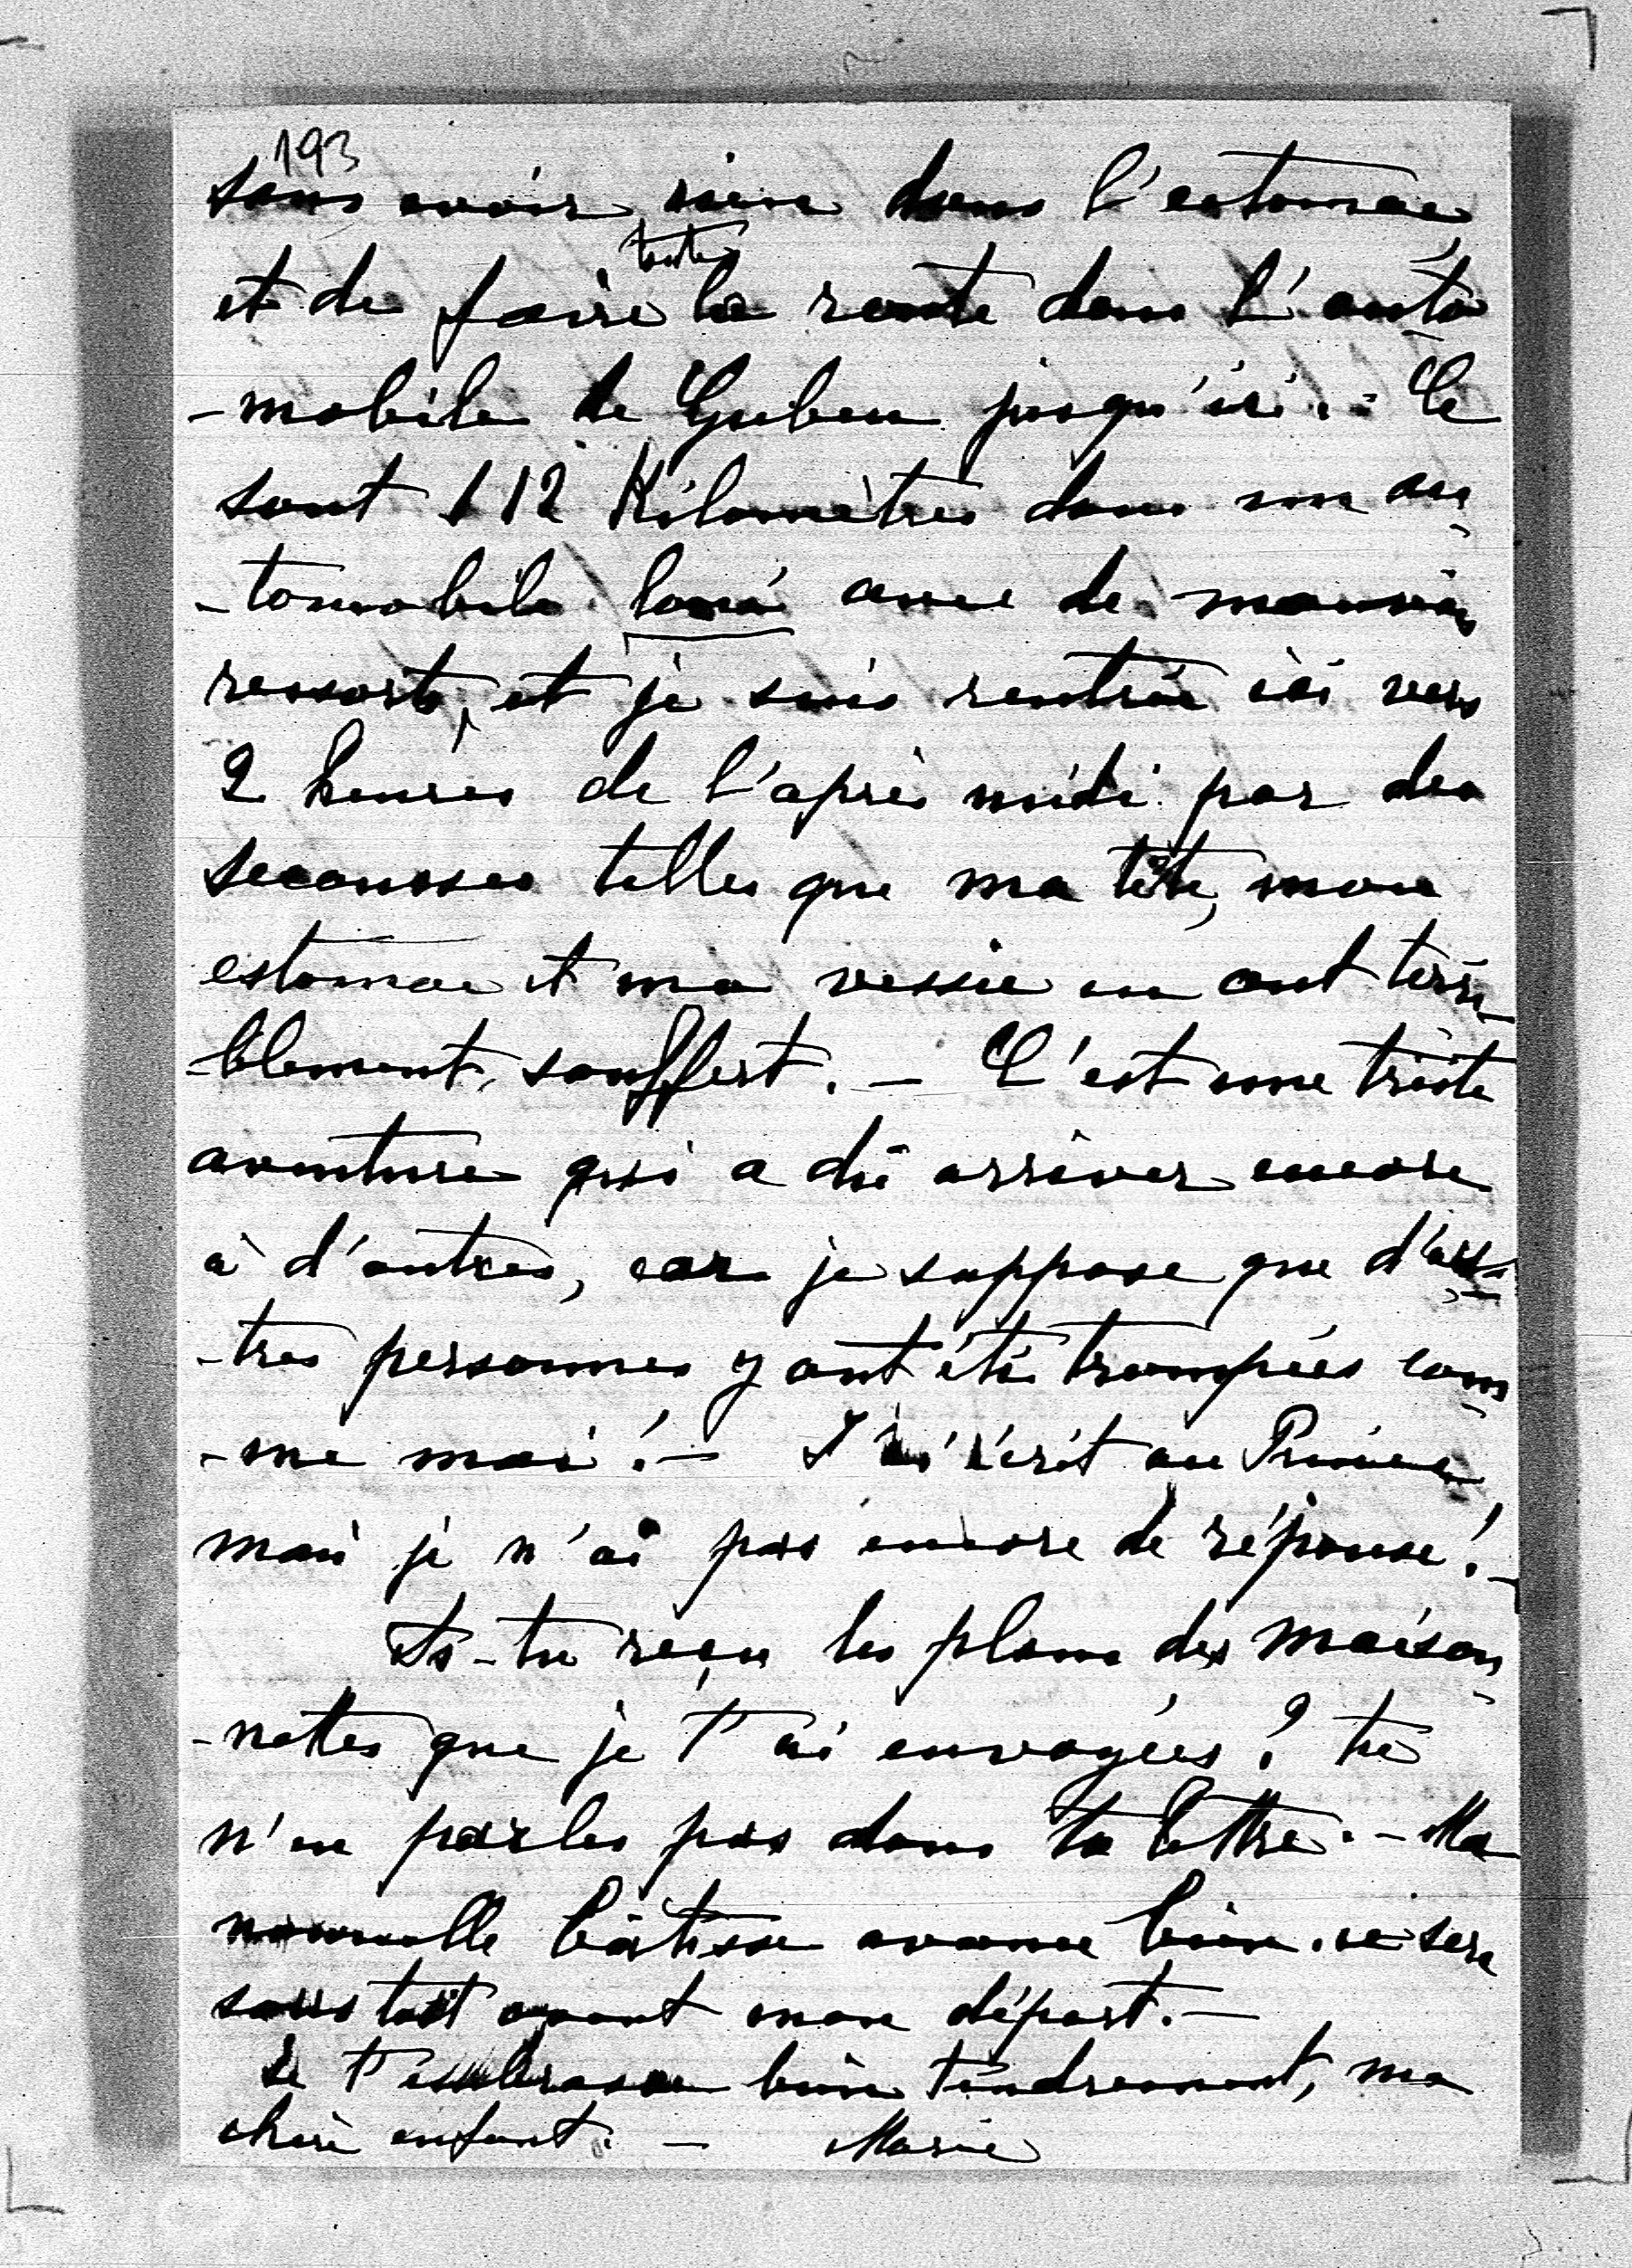 193
sans avoir rien dans l'estomac
toute
et de faire la route dans l'auto
-mobile de Guben jusqu'ici. Ce
sont 112 Kilomètres dans une au-
-tomobile loué avec de mauvais
ressorts, et je suis rentrée ici vers
2 heures de l'après midi par des
secousses telles que ma tête, mon
estomac et ma vessie en ont terri-
-blement souffert. - C'est une triste
aventure qui a dû arriver encore
à d'autres, car je suppose que d'au-
-tres personnes y ont été trompées com-
-me moi! - J'ai écrit au Prince
mais je n'ai pas encore de réponse! -
As-tu reçu les plans des maison-
-nettes que je t'ai envoyées? tu
n'en parles pas dans ta lettre. - Ma
nouvelle bâtisse avance bien et sera
sous toit avant mon départ. -
Je t'embrasse bien tendrement, ma
chère enfant. - Marie